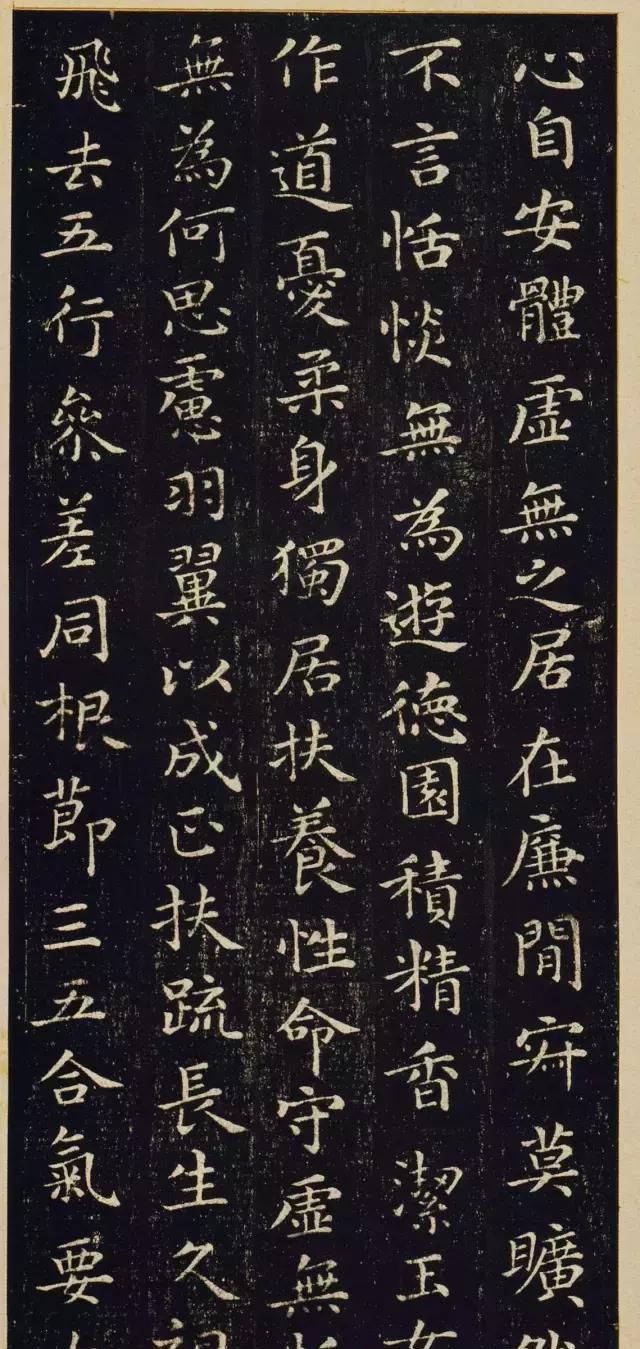 心自安體虛無之居在廉閒𡧯莫曠然
不言恬惔無為遊德園積精香潔玉女
作道憂柔身獨居扶養性命守虛無恬
無為何思慮羽翼以成正扶疏長生久視
飛去五行參差同根莭三五合氣要